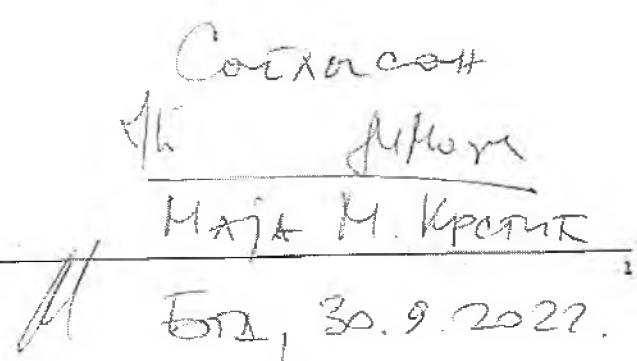 Сагласан
Маја М. Крстић
1
Бгд, 30.9.2022.